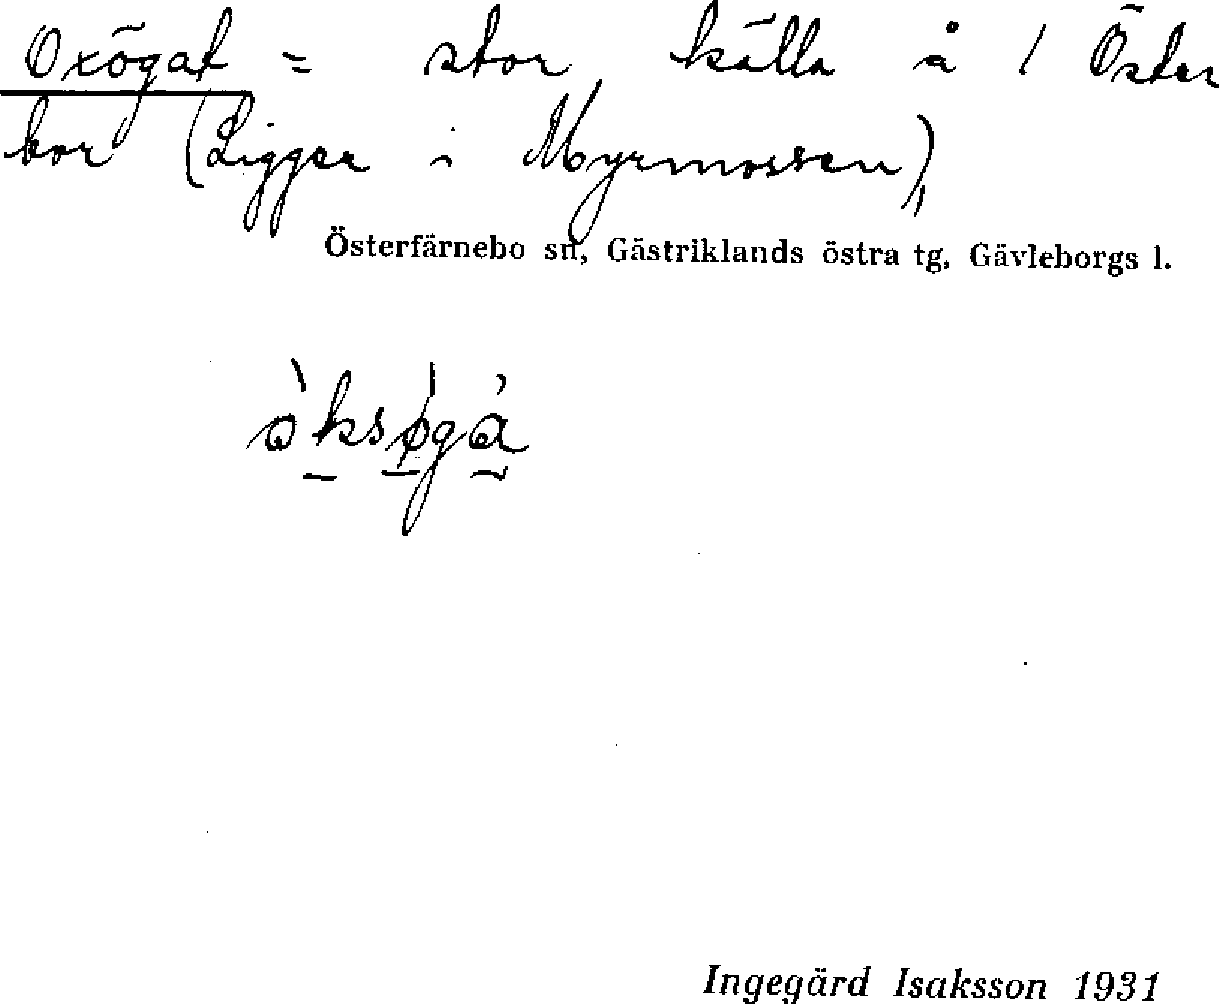 Oxögat = stor källa å 1 Öster
bor (Ligger i Myrmossen),
Österfärnebo sn, Gästriklands östra tg, Gävleborgs l.
Ingegärd Isaksson 1931